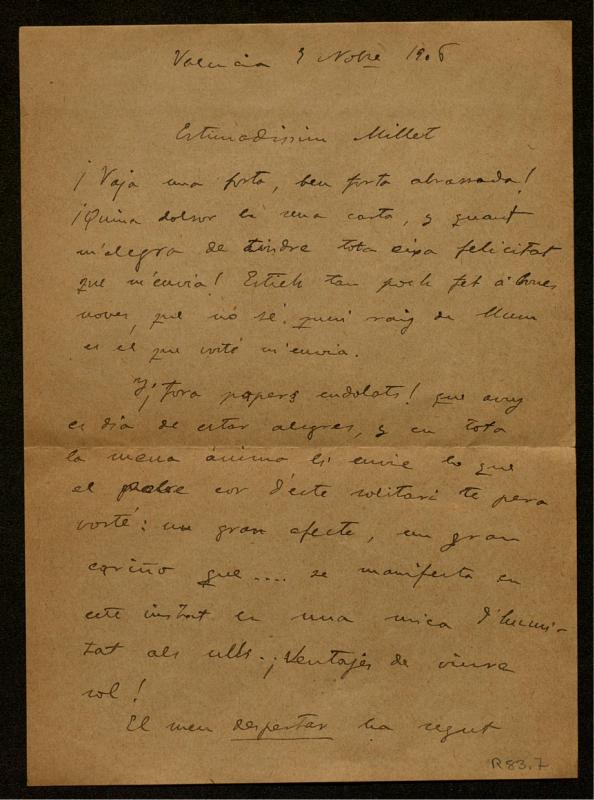 Valencia 3 Nobre 1906
Estimadíssim Millet
¡Vaja una forta, ben forta abrassada!
¡Quina dolsor la seua carta, y quant
m'alegra de tindre tota eixa felicitat
que m'envia! Estich tan poch fet á bones
noves, que nó sé quin raig de llum
es el que vosté m'envia.
Y ¡fora papers endolats! que avuy
es dia de estar alegres, y en tota
la meua ánima li envie lo que
el pobre cor d'este solitari te pera
vosté: un gran afecte, un gran
cariño que.... se manifesta en
este instat en una mica d'humi-
tat als ulls. ¡Ventajes de viure
sol!
El meu despertar ha segut
R 83.7